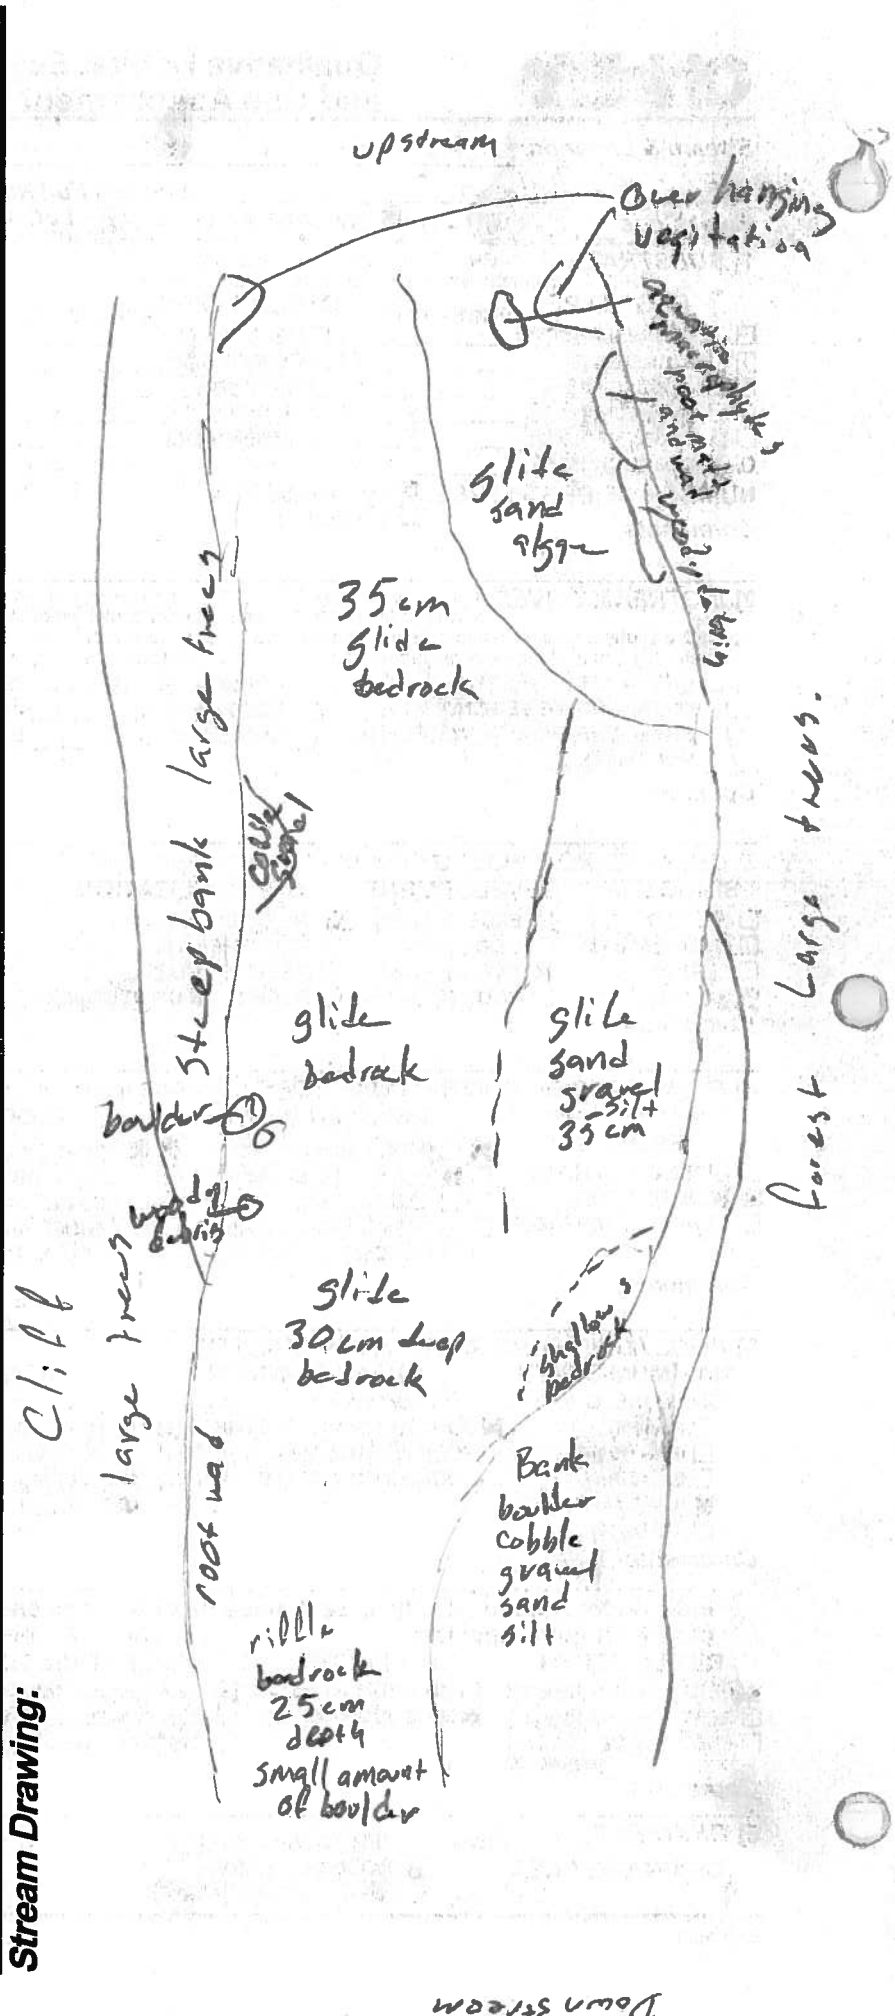 upstream
Over hanging
vegitation
aquatic
macrophytes
root mats
and wad
woody debris
glide
sand
algae
35 cm
glide
bedrock
Steep bank large trees
cobble
gravel
Large trees.
forest
glide
bedrock
glide
sand
gravel
silt
35 cm
boulder
woody
debris
Cliff
large trees
glide
30 cm deep
bedrock
shallow
bedrock
root wad
Bank
boulder
cobble
gravel
sand
silt
riffle
bedrock
25 cm
depth
small amount
of boulder
Stream Drawing:
Down stream